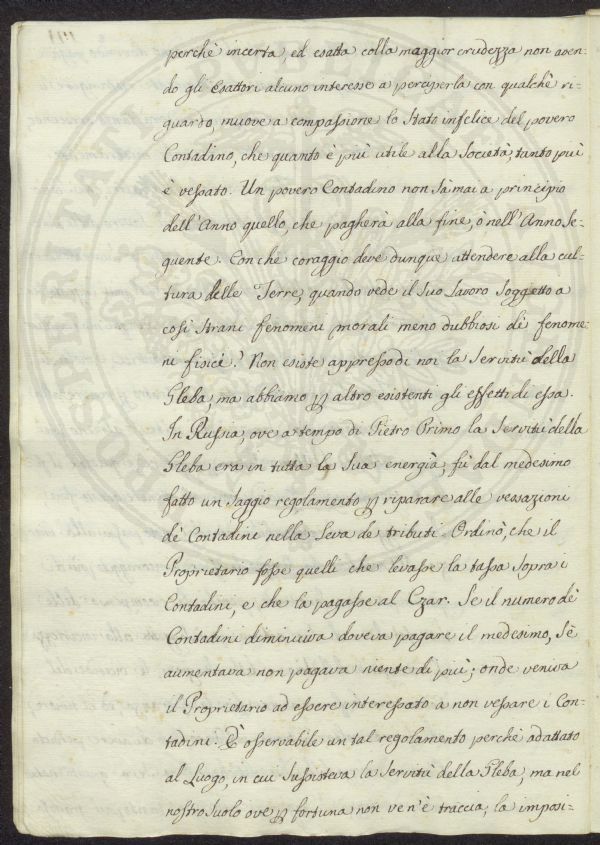 perchè incerta, ed esatta colla maggior crudezza non aven-
do gli Esattori alcuno interesse a perciperla con qualchè ri-
guardo, muove a compassione lo Stato infelice del povero
Contadino, che quanto è più utile alla Società, tanto più
è vessato. Un povero Contadino non sà mai a principio
dell'Anno quello, che pagherà alla fine, ò nell'Anno se-
guente. Con che coraggio deve dunque attendere alla cul-
tura delle Terre, quando vede il suo Lavoro soggetto a
così strani fenomeni morali meno dubbiosi dè fenome-
ni fisici? Non esiste appresso di noi la servitù della
Gleba, ma abbiamo ꝑ altro esistenti gli effetti di essa.
In Russia, ove a tempo di Pietro Primo la servitù della
Gleba era in tutta la sua energìa, fù dal medesimo
fatto un saggio regolamento ꝑ riparare alle vessazioni
dè Contadini nella Leva de tributi. Ordinò, che il
Proprietario fosse quelli che levasse la tassa sopra i
Contadini, e che la pagasse al Czar. Se il numero dè
Contadini diminuiva doveva pagare il medesimo, sè
aumentava non pagava niente di più; onde veniva
il Proprietario ad essere interessato a non vessare i Con-
tadini. È osservabile un tal regolamento perchè adattato
al Luogo, in cui sussisteva la servitù della Gleba, ma nel
nostro suolo ove ꝑ fortuna non ven'è traccia, la imposi-